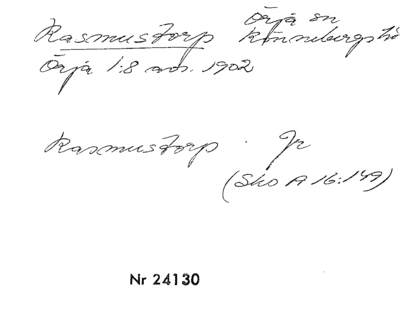 Rasmustorp Örja sn
Rönnebergs hd
Örja 1:8 avs. 1902
Rasmustorp . Jr
(Sko A 16:149)
Nr 24130